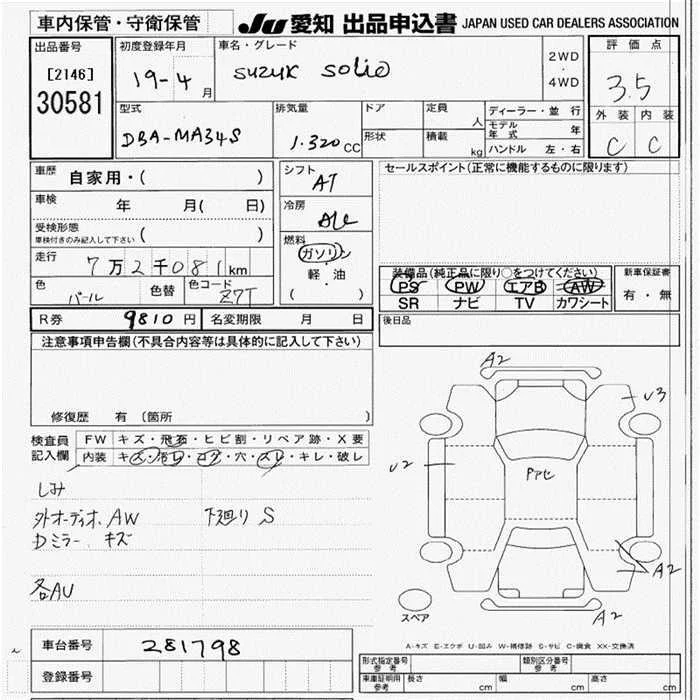 車内保管・守衛保管
JU 愛知 出品申込書 JAPAN USED CAR DEALERS ASSOCIATION
出品番号
[2146]
30581
初度登録年月
19-4 月
車名・グレード
SUZUK SOLIO
2WD
・
4WD
評価点
3.5
外装 内装
C C
型式
DBA-MA34S
排気量
1.320 CC
ドア
形状
定員
人
積載
kg
ディーラー・並行
モデル年式 年
ハンドル 左・右
車歴 自家用・( )
車検 年 月( 日)
受検形態
車検付きのみ記入して下さい ( )
走行 7万2千081km
色 パール 色替 色コード Z7T
シフト
AT
冷房
燃料
ガソリン
軽・油
( )
セールスポイント(正常に機能するものに限ります)
装備品(純正品に限り○をつけてください)
PS PW エアB AW
SR ナビ TV カワシート
新車保証書
有・無
R券 9810 円 名変期限 月 日
後日品
注意事項申告欄(不具合内容等は具体的に記入して下さい)
修復歴 有 〔箇所 〕
検査員
記入欄
FW キズ・飛石・ヒビ割・リペア跡・X要
内装 キズ・汚れ・コゲ・穴・スレ・キレ・破レ
しみ
外オーディオ、AW 下廻り S
Dミラー キズ
各AU
A2
U3
U2
Pアセ
A2
A2
スペア
A-キズ E-エクボ U-凹み W-補修跡 S-サビ C-腐食 XX-交換済
車台番号 281798
登録番号
型式指定番号
参考
類別区分番号
参考
車庫証明用
参考
長さ cm 幅 cm 高さ cm